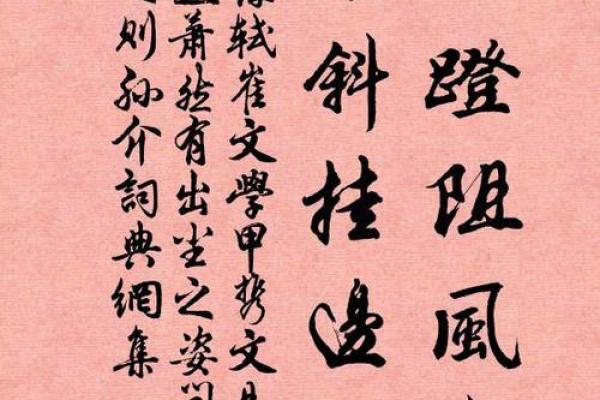 蹬阻風
斜挂邊
軾崔文學甲携文
蕭然有出尘之姿
則孫介詞典網集